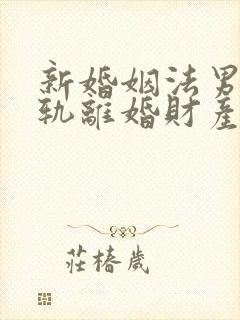 新婚姻法男
軌離婚財產
莊椿歲